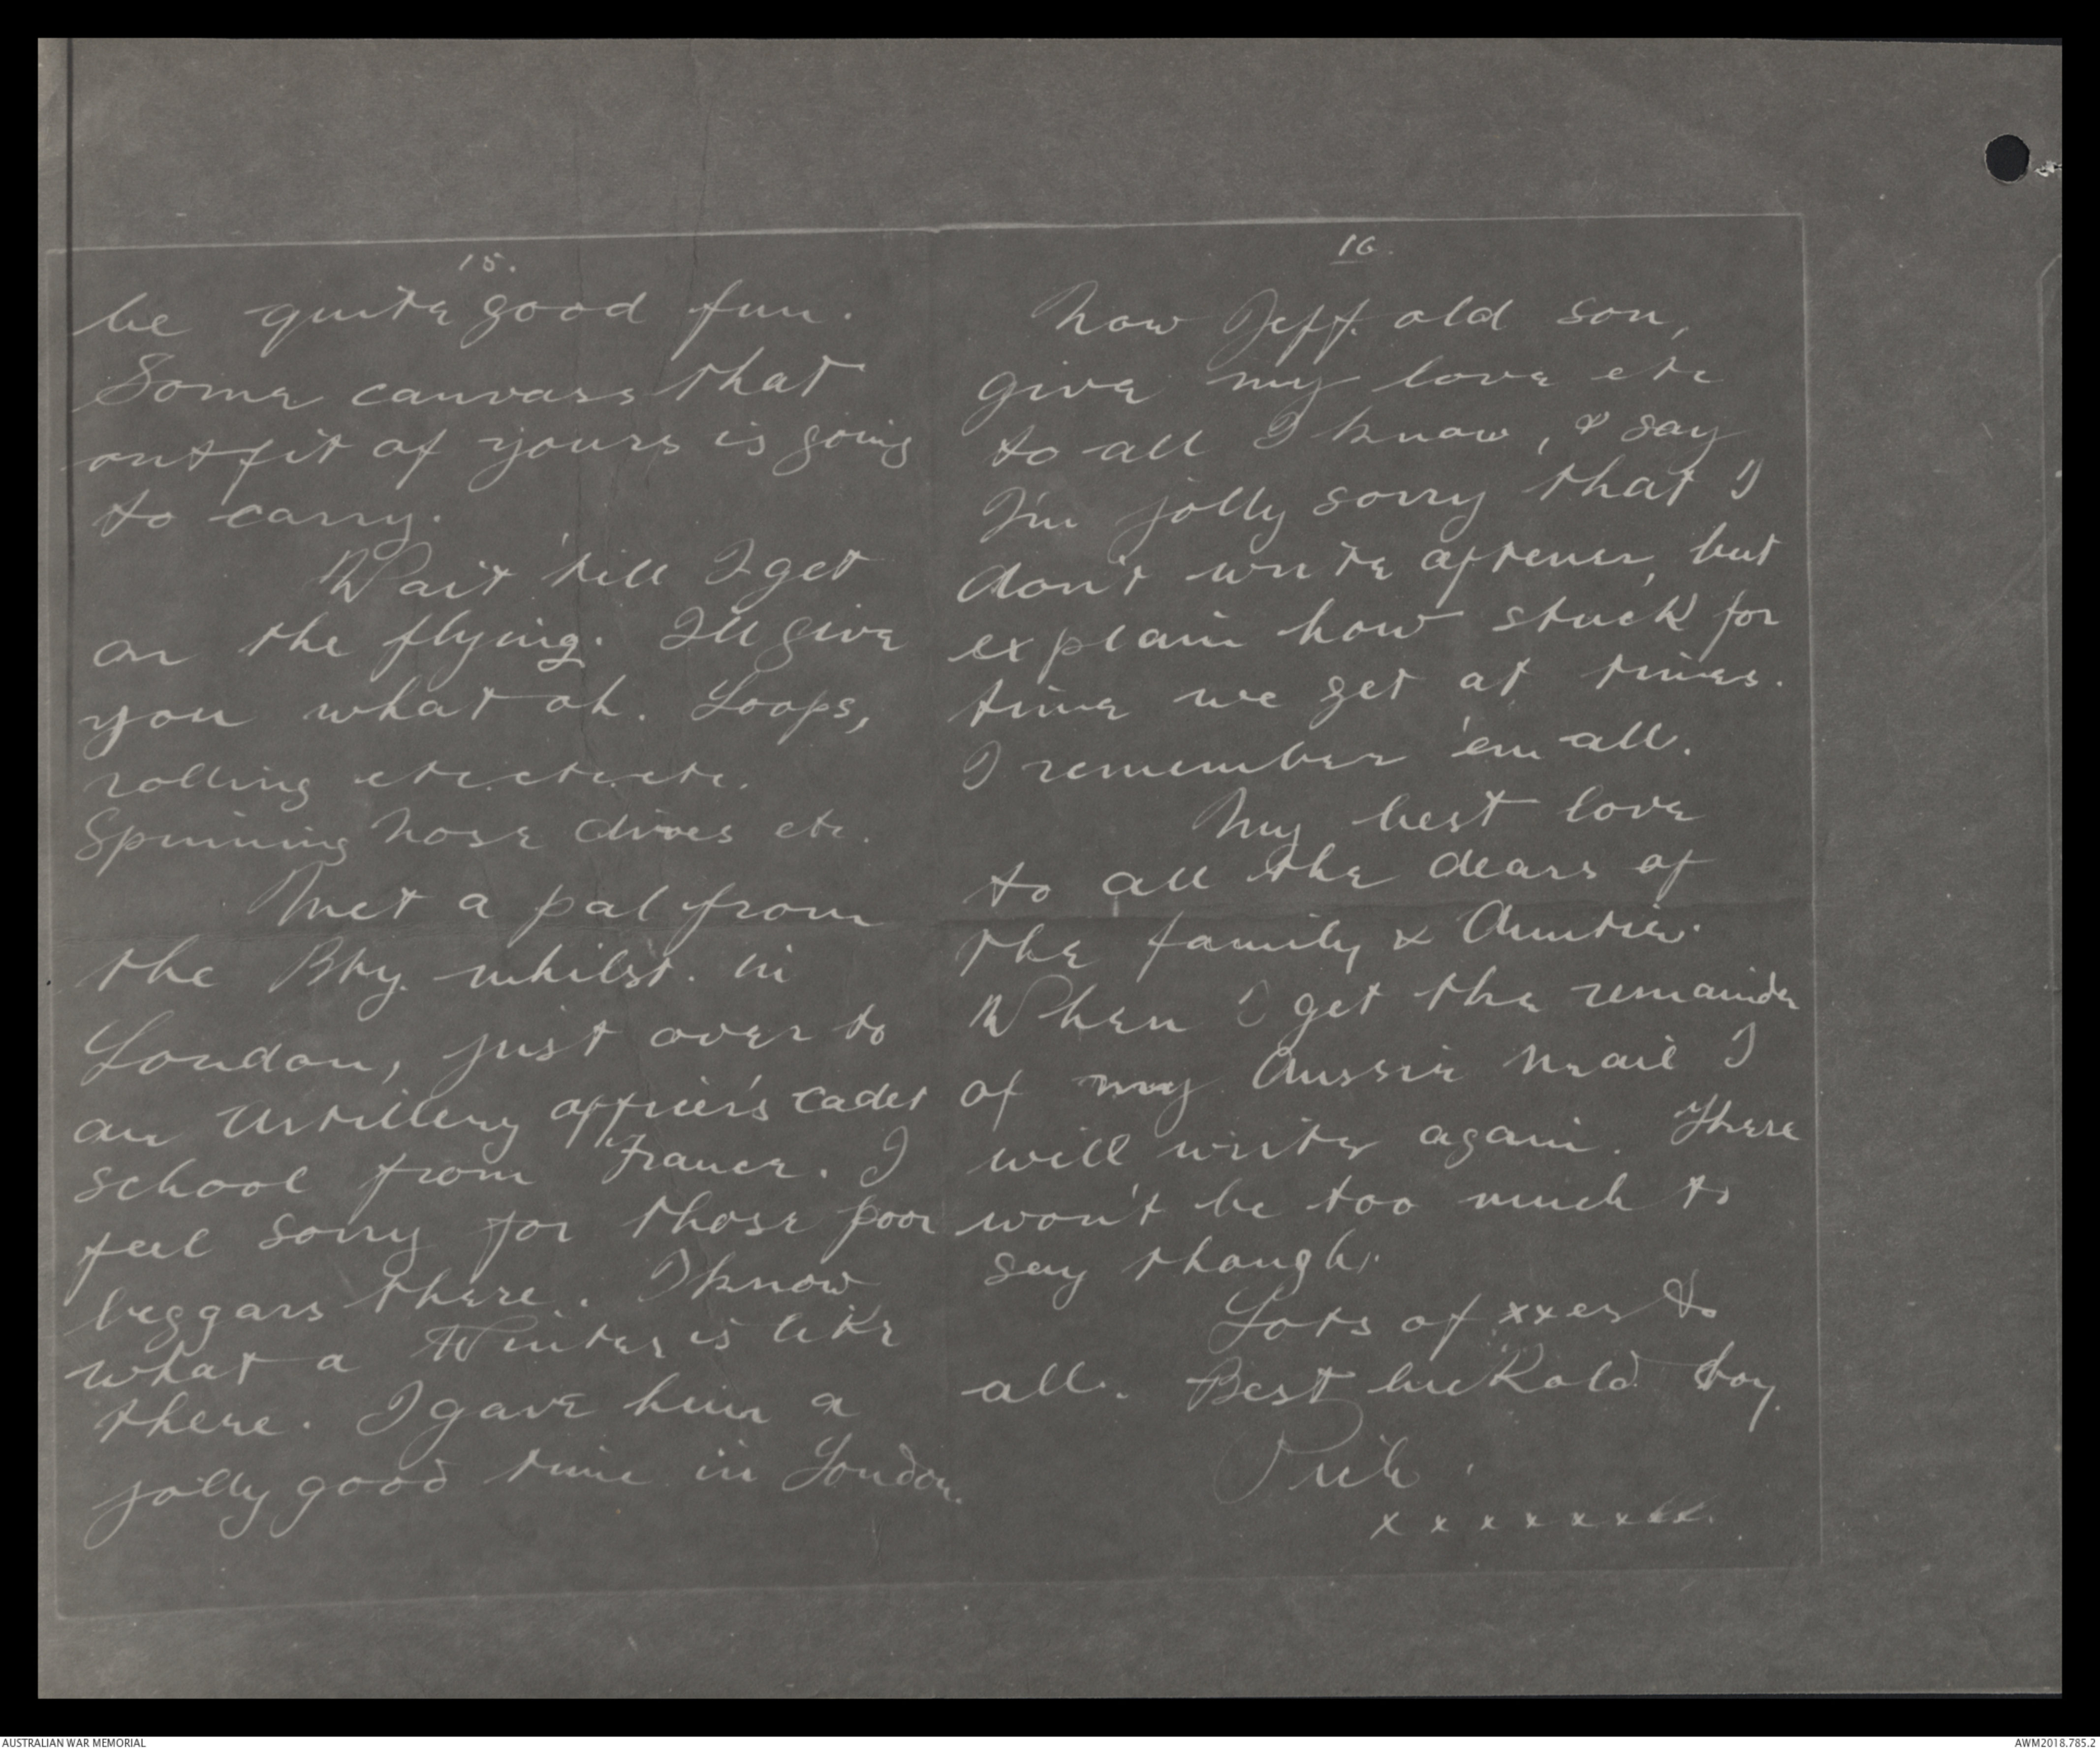 15.
be quite good fun.
Some canvass that
outfit of yours is going
to carry.
Wait 'till I get
on the flying. I'll give
you what oh. Loops,
rolling etc. etc. etc.
Spinning nose dives etc.
Met a pal from
the Bty. whilst in
London, just over to
an Artillery officer's cadet
school from France. I
feel sorry for those poor
beggars there. I know
what a Winter is like
there. I gave him a
jolly good time in London.
16.
Now Jeff. old son,
give my love etc
to all I know, & say
I'm jolly sorry that I
don't write oftener, but
explain how stuck for
time we get at times.
I remember 'em all.
My best love
to all the dears of
the family & Auntie.
When I get the remainder
of my Aussie mail I
will write again. There
won't be too much to
say though.
Lots of xxes to
all. Best luck old boy.
x x x x x x x x x.
AUSTRALIAN WAR MEMORIAL
AWM2018.785.2